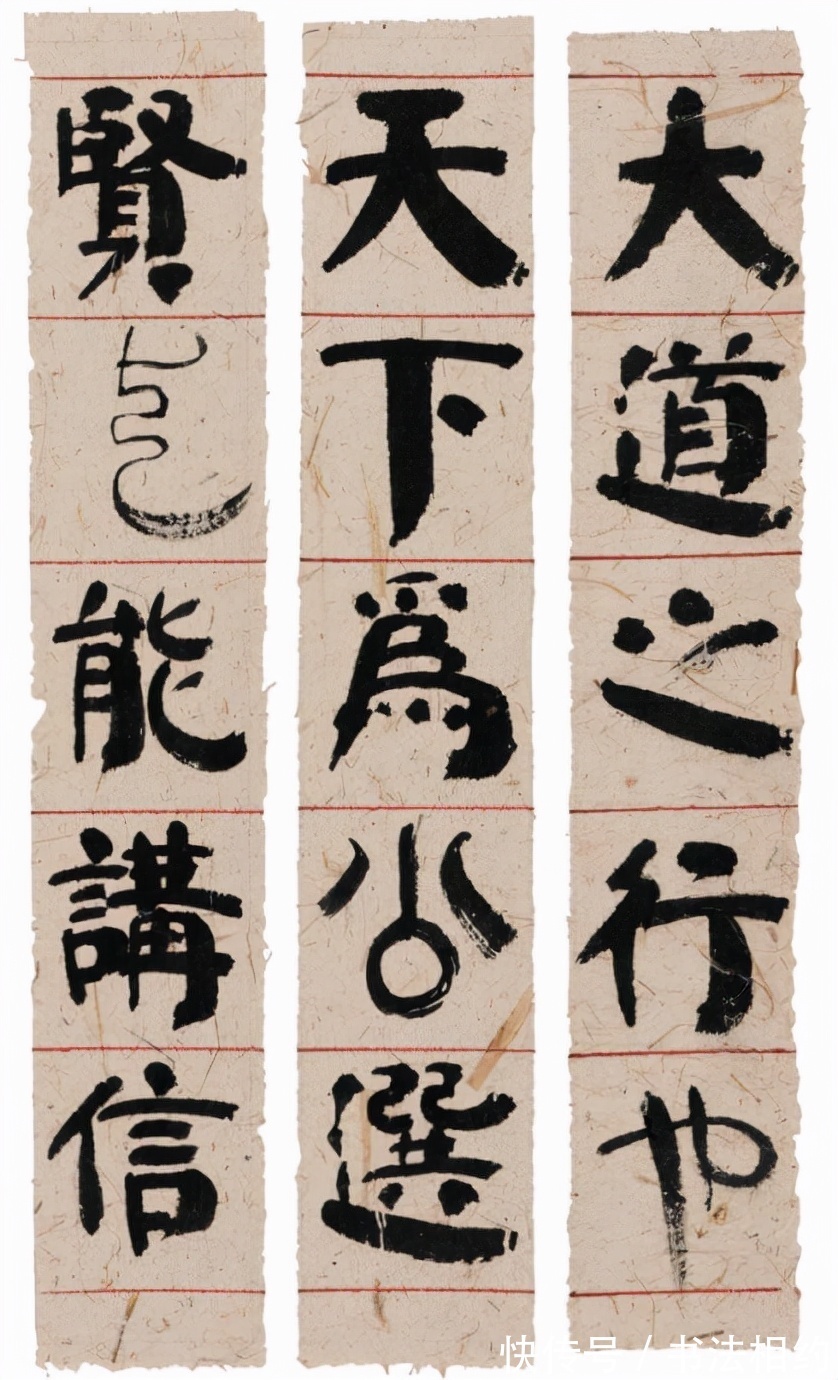 大道之行也
天下爲公選
賢与能講信
快传号 / 书法相约